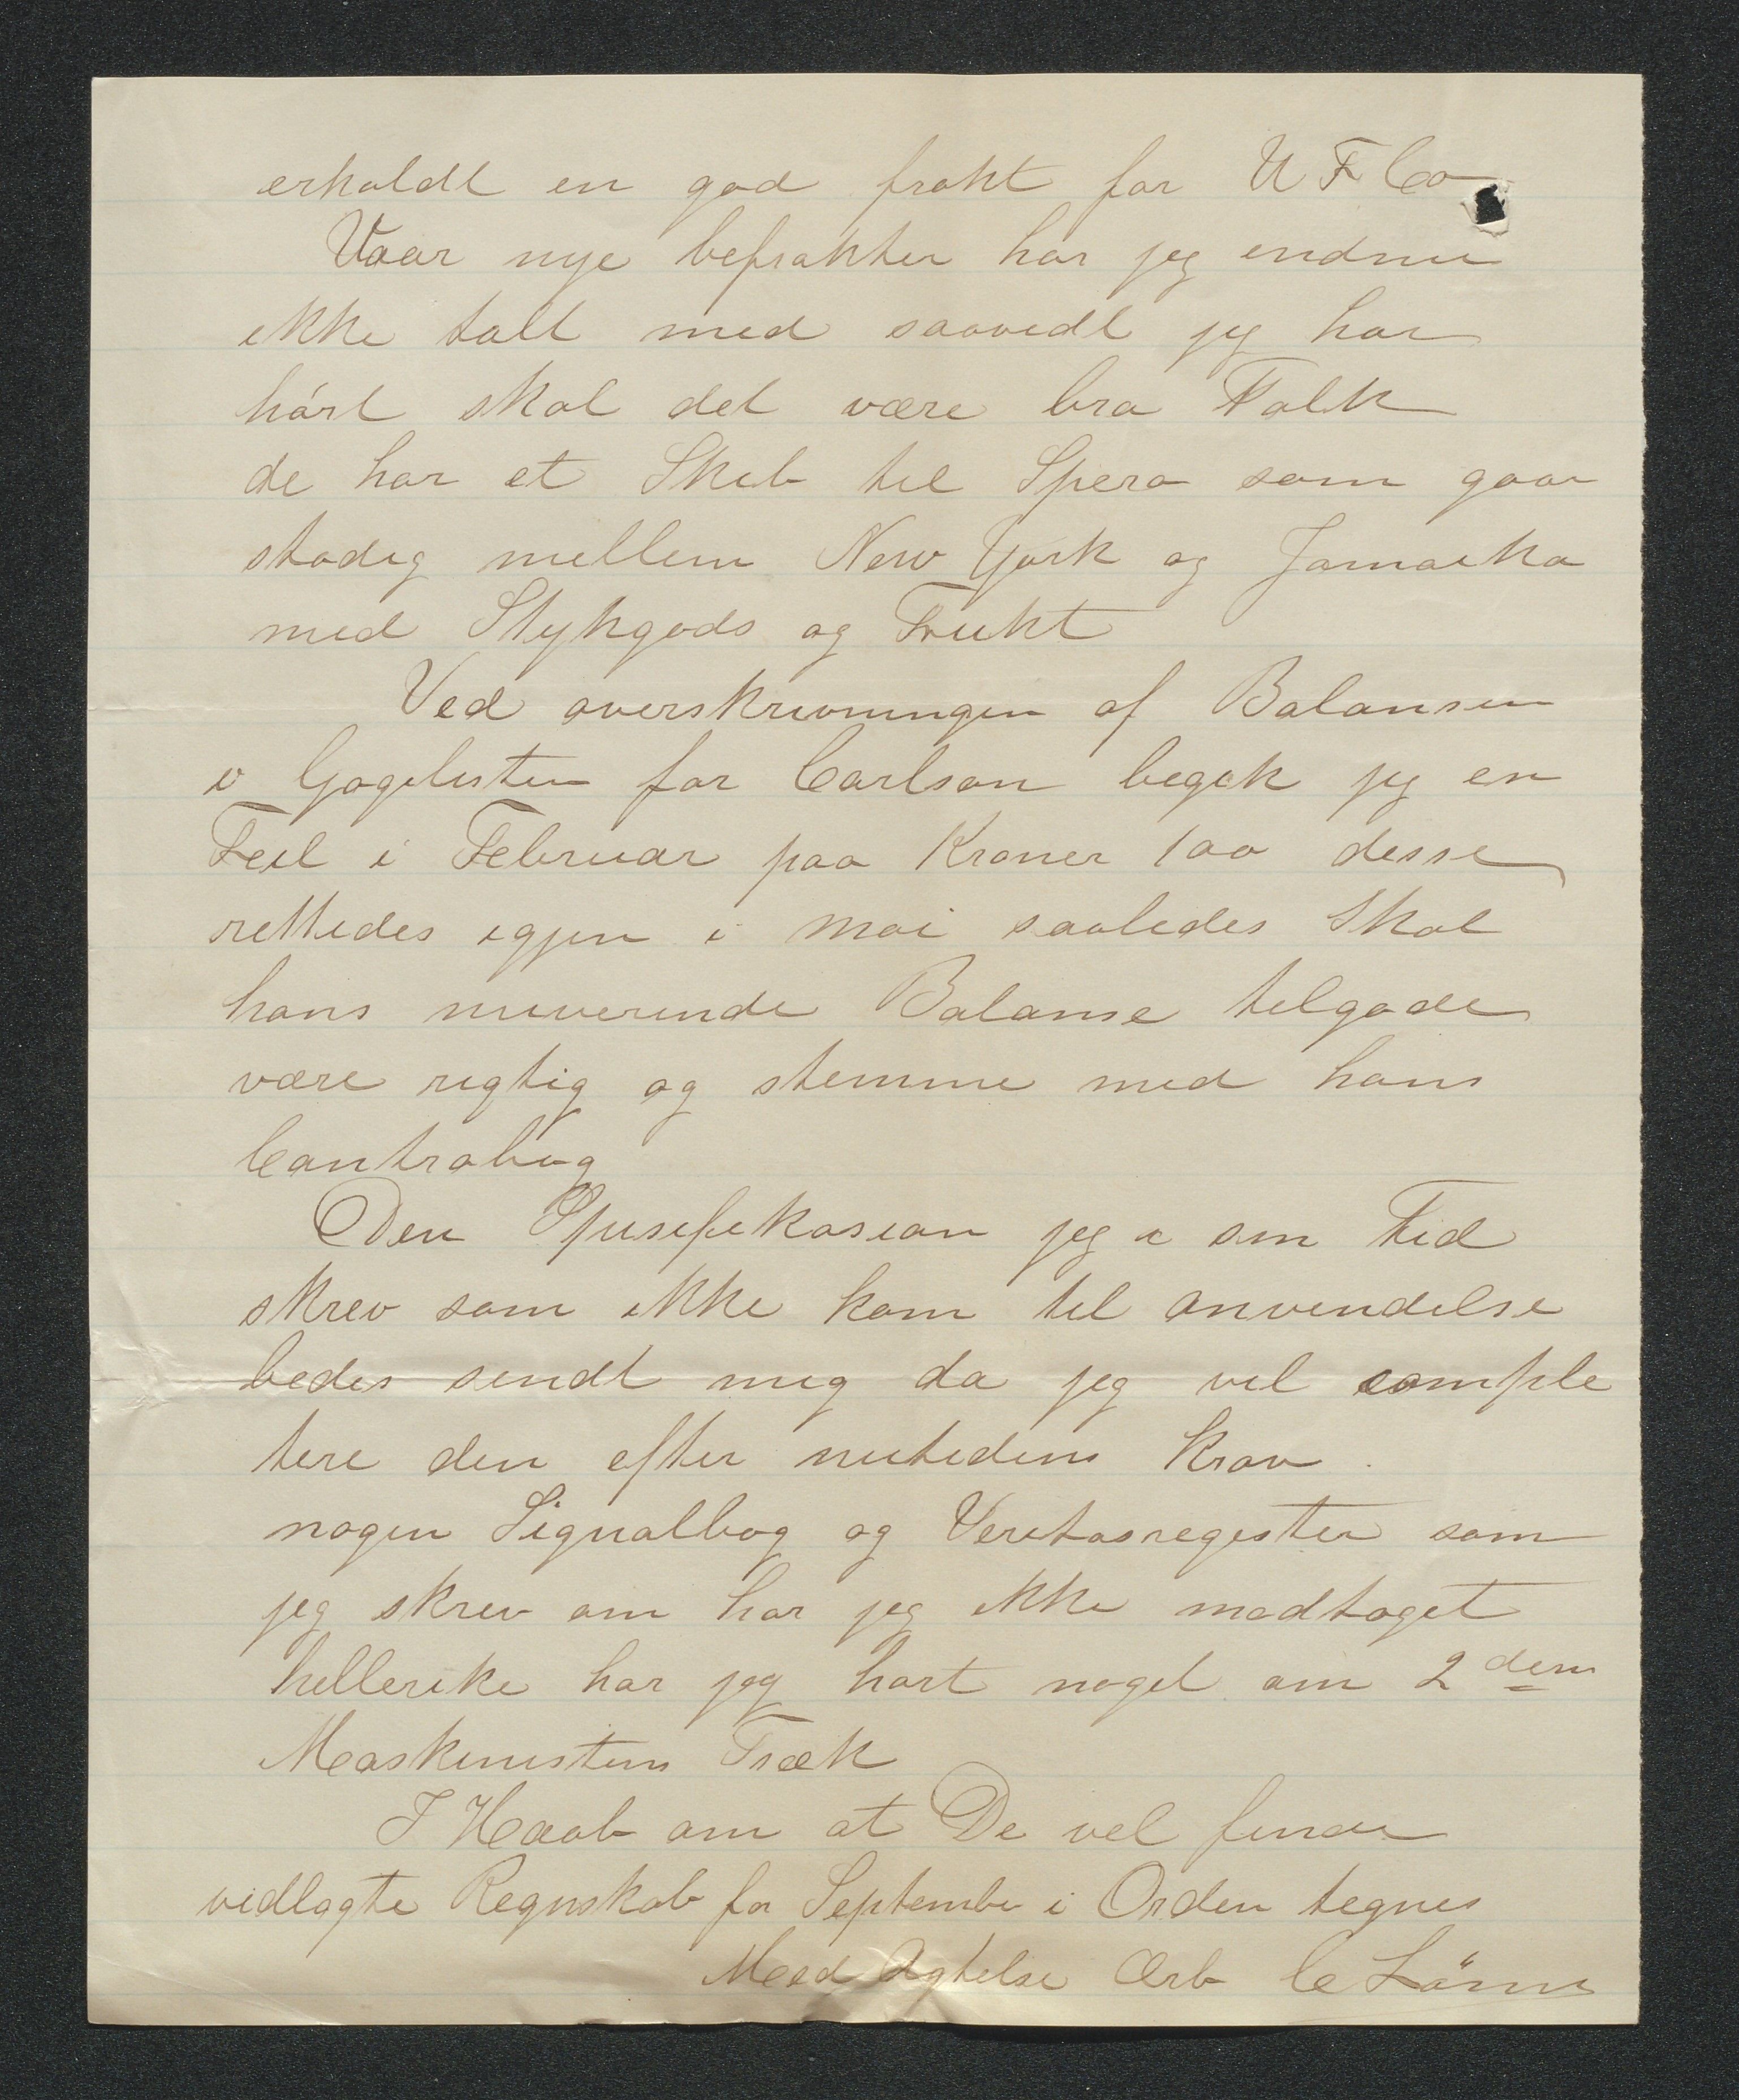 erholdt en god frakt for U F Co
Vaar nye befrakter har jeg endnu
ikke talt med saavidt jeg har
hórt skal det være bra Folk
de har et Skib til Spero som gaar
stadig mellem New York og Jamaika
med Stykgods og Frukt
Ved overskrivningen af Balansen
i Gagelisten for Carlson begik jeg en
Feil i Februar paa Kroner 100 disse
rettedes igjen i Mai saaledes Skal
hans nuverende Balanse tilgode
være rigtig og stemme med hans
Contrabog
Den Spusifikasion jeg i sin Tid
skrev som ikke kom til anvendelse
bedes sendt mig da jeg vil comple
tere den efter nutidens Krav.
nogen Signalbog og Veritasregister som
jeg skrev om har jeg ikke modtaget
hellerike har jeg hørt noget om 2den
Maskinistens Træk
I Haab om at De vil finde
vidlagte Regnskab for September i Orden tegnes
Med Agtelse Ærb C Lönne